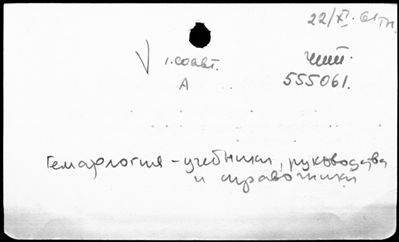 22/XI.61 тп.
√ 1.соавт. чит.
А 555061.
Гематология - учебники, руководства
и справочники